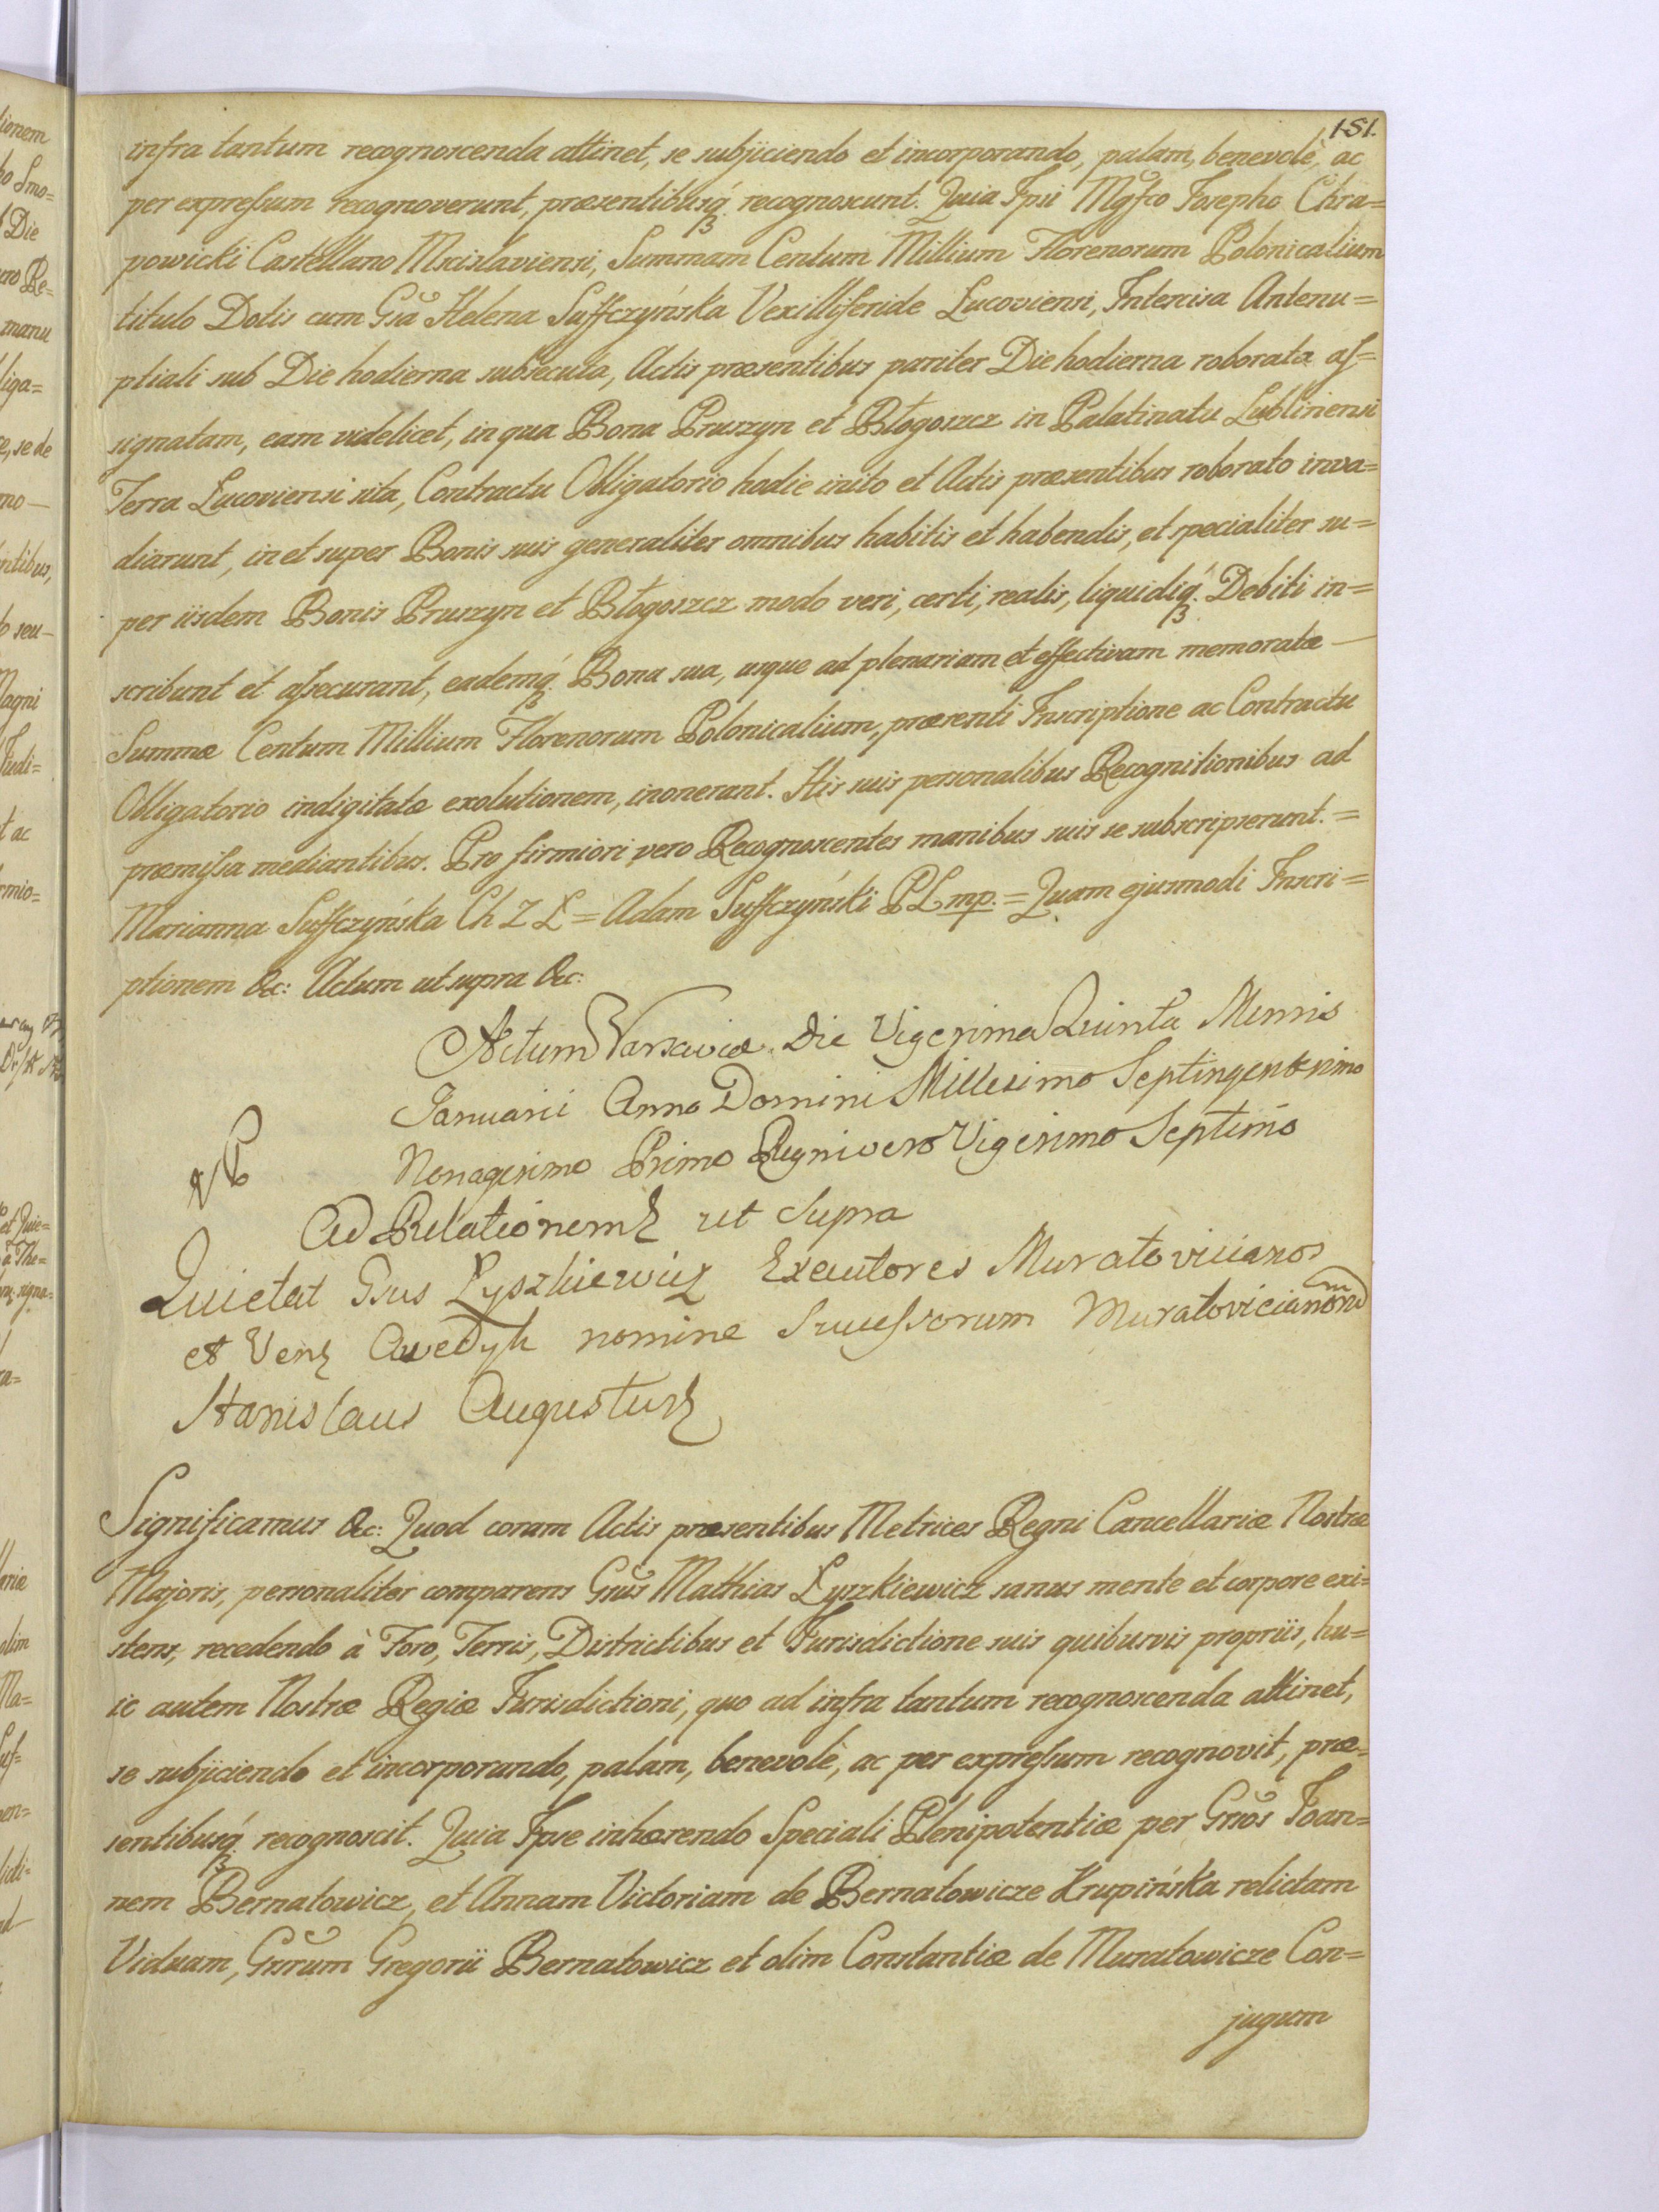 151.
infra tantum recognoscenda attinet, se subjiciendo et incorporando, palam, benevolè, ac
per expressum recognoverunt, præsentibusq́ꝫ recognoscunt. Quia Ipsi Mgfco Josepho Chra=
powicki Castellano Mscislaviensi, Summam Centum Millium Florenorum Polonicalium
titulo Dotis cum Gsã Helena Suffczyńska Vexilliferide Lucoviensi, Intercisa Antenu=
ptiali sub Die hodierna subsecuta, Actis præsentibus pariter Die hodierna roborata as=
signatam, eam videlicet, in qua Bona Pruszyn et Błogoszcz in Palatinatu Lublinensi
Terra Lucoviensi sita, Contractu Obligatorio hodie inito et Actis præsentibus roborato inva=
diarunt, in et super Bonis suis generaliter omnibus habitis et habendis, et specialiter su=
per iisdem Bonis Pruszyn et Błogoszcz modo veri, certi, realis, liquidiq́ꝫ Debiti in=
scribunt et assecurant, eademq́ꝫ Bona sua, usque ad plenariam et effectivam memoratæ —
Summæ Centum Millium Florenorum Polonicalium, præsenti Inscriptione ac Contractu
Obligatorio indigitatæ exolutionem, inonerant. His suis personalibus Recognitionibus ad
præmissa mediantibus. Pro firmiori vero Recognoscentes manibus suis se subscripserunt. =
Marianna Suffczyńska Ch Z Ł = Adam Suffczyński PL mp. = Quam ejusmodi Inscri=
ptionem &c: Actum ut supra &c:
Actum Varsaviæ Die Vigesima Quinta Mensis
Januarii Anno Domini Millesimo Septingentesimo
Nonagesimo Primo Regni vero Vigesimo Septimo
Ad Relationem ut supra
Quietat Gsus Łyszkiewicz Executores Muratovicianos
et Ven Awedyk nomine Successorum Muratovicianorum
Stanislaus Augustus
Significamus &c: Quod coram Actis præsentibus Metrices Regni Cancellariæ Nostræ
Majoris, personaliter comparens Gsus Mathias Łyszkiewicz sanus mente et corpore exi=
stens, recedendo à Foro, Terris, Districtibus et Jurisdictione suis quibusvis propriis, hu=
ic autem Nostræ Regiæ Jurisdictioni, quo ad infra tantum recognoscenda attinet,
se subjiciendo et incorporando, palam, benevolè, ac per expressum recognovit, præ=
sentibusq́ꝫ recognoscit. Quia Ipse inhærendo Speciali Plenipotentiæ per Gsos Joan=
nem Bernatowicz, et Annam Victoriam de Bernatowicze Krupińska relictam
Viduam, Gsrum Gregorii Bernatowicz et olim Constantiæ de Muratowicze Con=
jugum